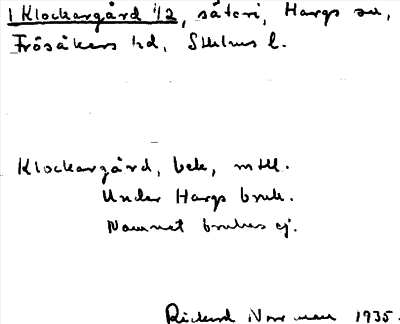 1 Klockargård 1/2, säteri, Hargs sn,
Frösåkers hd, Sthlms l.
Klockargård, bek, mtl.
Under Hargs bruk.
Namnet brukas ej.
Rickard Norrman 1935.